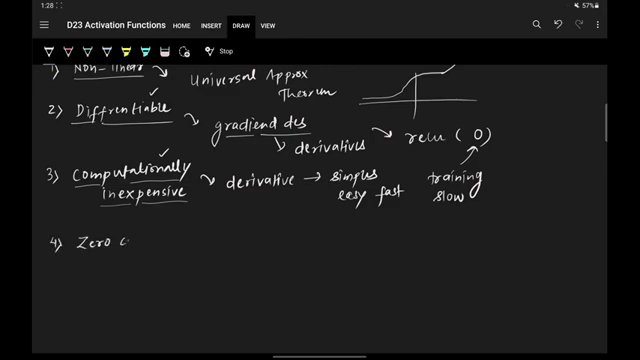 1:28
57%
D23 Activation Functions
HOME INSERT DRAW VIEW
Stop
1) Non-linear
Universal Approx
Theorem
2) Diffrentiable
gradiend des
derivatives
relu (0)
3) Computationally
inexpensive
derivative → simples
easy fast
training
slow
4) Zero c